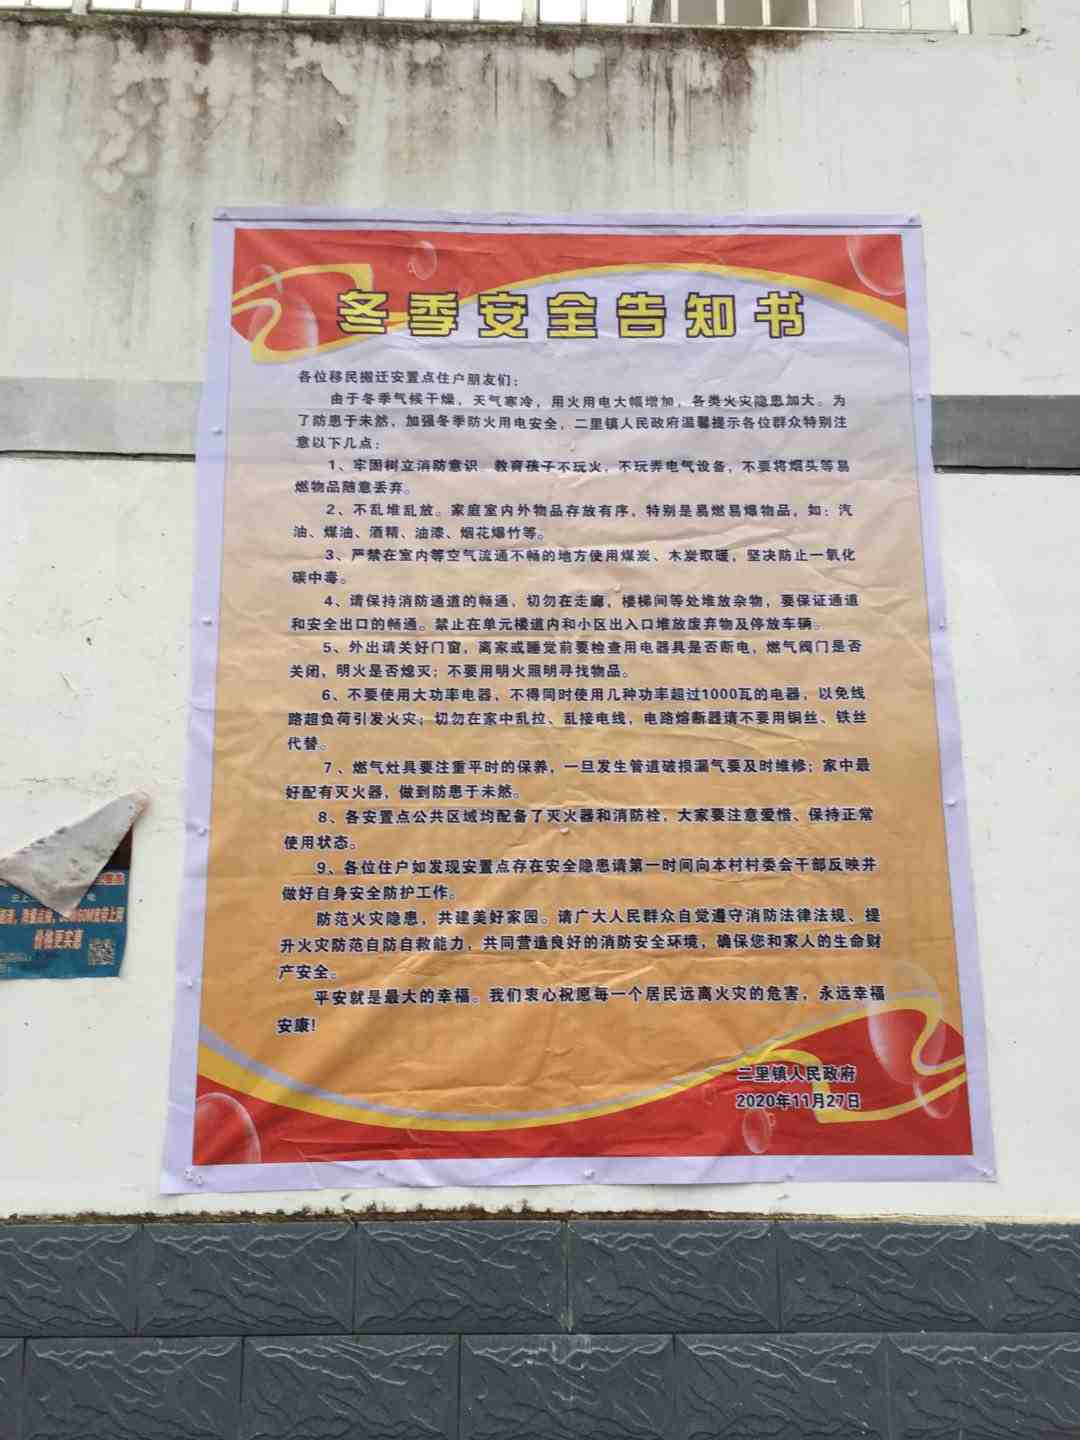 冬季安全告知书
各位移民搬迁安置点住户朋友们：
由于冬季气候干燥，天气寒冷，用火用电大幅增加，各类火灾隐患加大。为
了防患于未然，加强冬季防火用电安全，二里镇人民政府温馨提示各位群众特别注
意以下几点：
1、牢固树立消防意识，教育孩子不玩火，不玩弄电气设备，不要将烟头等易
燃物品随意丢弃。
2、不乱堆乱放。家庭室内外物品存放有序，特别是易燃易爆物品，如：汽
油、煤油、酒精、油漆、烟花爆竹等。
3、严禁在室内等空气流通不畅的地方使用煤炭、木炭取暖，坚决防止一氧化
碳中毒。
4、请保持消防通道的畅通、切勿在走廊，楼梯间等处堆放杂物，要保证通道
和安全出口的畅通。禁止在单元楼道内和小区出入口堆放废弃物及停放车辆。
5、外出请关好门窗，离家或睡觉前要检查用电器具是否断电，燃气阀门是否
关闭，明火是否熄灭；不要用明火照明寻找物品。
6、不要使用大功率电器、不得同时使用几种功率超过1000瓦的电器，以免线
路超负荷引发火灾；切勿在家中乱拉、乱接电线，电路熔断器请不要用铜丝、铁丝
代替。
7、燃气灶具要注重平时的保养，一旦发生管道破损漏气要及时维修；家中最
好配有灭火器，做到防患于未然。
8、各安置点公共区域均配备了灭火器和消防栓，大家要注意爱惜、保持正常
使用状态。
9、各位住户如发现安置点存在安全隐患请第一时间向本村村委会干部反映并
做好自身安全防护工作。
防范火灾隐患，共建美好家园。请广大人民群众自觉遵守消防法律法规、提
升火灾防范自防自救能力，共同营造良好的消防安全环境，确保您和家人的生命财
产安全。
平安就是最大的幸福。我们衷心祝愿每一个居民远离火灾的危害，永远幸福
安康！
二里镇人民政府
2020年11月27日
价格更实惠